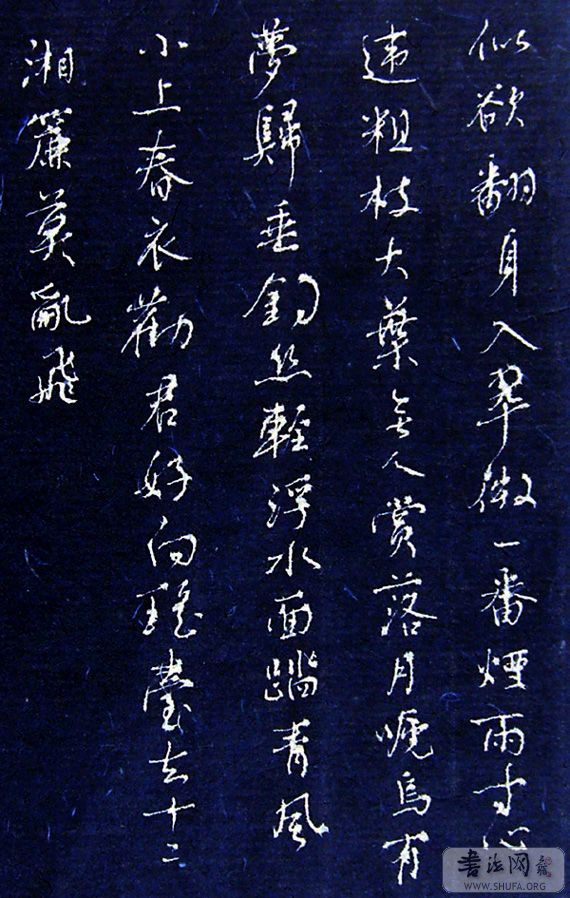 似欲翻身入翠微一番煙雨寸心
違粗枝大葉無人賞落月嗁烏有
夢歸垂釣絲輕浮水面踏青風
小上春衣勸君好向瑤臺去十二
湘簾莫亂飛
書法网
WWW.SHUFA.ORG